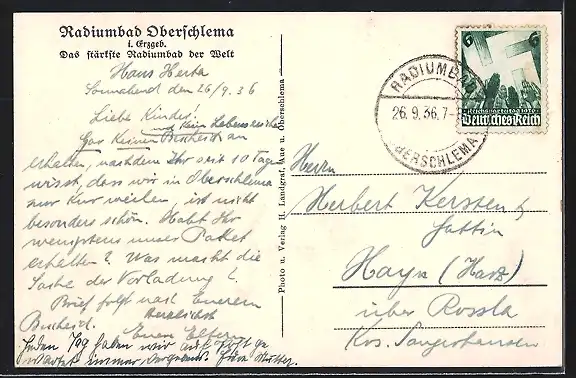 Radiumbad Oberschlema
i. Erzgeb.
Das stärkste Radiumbad der Welt
Haus Herta
Sonnabend den 26/9. 36
Liebe Kinder!
und kein Lebenszeichen
Gar keinen Bescheid
erhalten, nachdem Ihr seit 10 Tage
wisst, dass wir in Oberschlema
zur Kur weilen, ist nicht
besonders schön. Habt Ihr
wenigstens unser Paket
erhalten? Was macht die
Sache der Vorladung?
Brief folgt nach Eurem
Bescheid. Herzlichst
Euere Eltern
Jeden Tag haben wir auf Post ge
wartet immer vergebens Eure Mutter.
Photo u. Verlag H. Landgraf, Aue u. Oberschlema
RADIUMBAD
26.9.36.7-
OBERSCHLEMA
6 6
Reichsparteitag 1936
Deutsches Reich
Herrn
Herbert Kersten &
Gattin
Hayn (Harz)
über Rossla
Krs. Sangerhausen